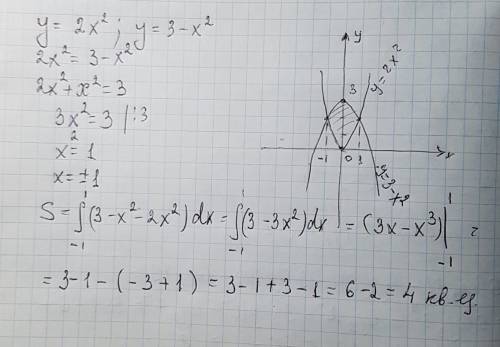 y = 2x²; y = 3-x²
2x² = 3-x²
2x²+x² = 3
3x² = 3 |:3
x² = 1
x = ±1
y
3
y=2x²
-1 0 1 x
y=3-x²
S = ∫₋₁¹(3-x²-2x²)dx = ∫₋₁¹(3-3x²)dx = (3x-x³)|₋₁¹ =
= 3-1-(-3+1) = 3-1+3-1 = 6-2 = 4 кв.ед.